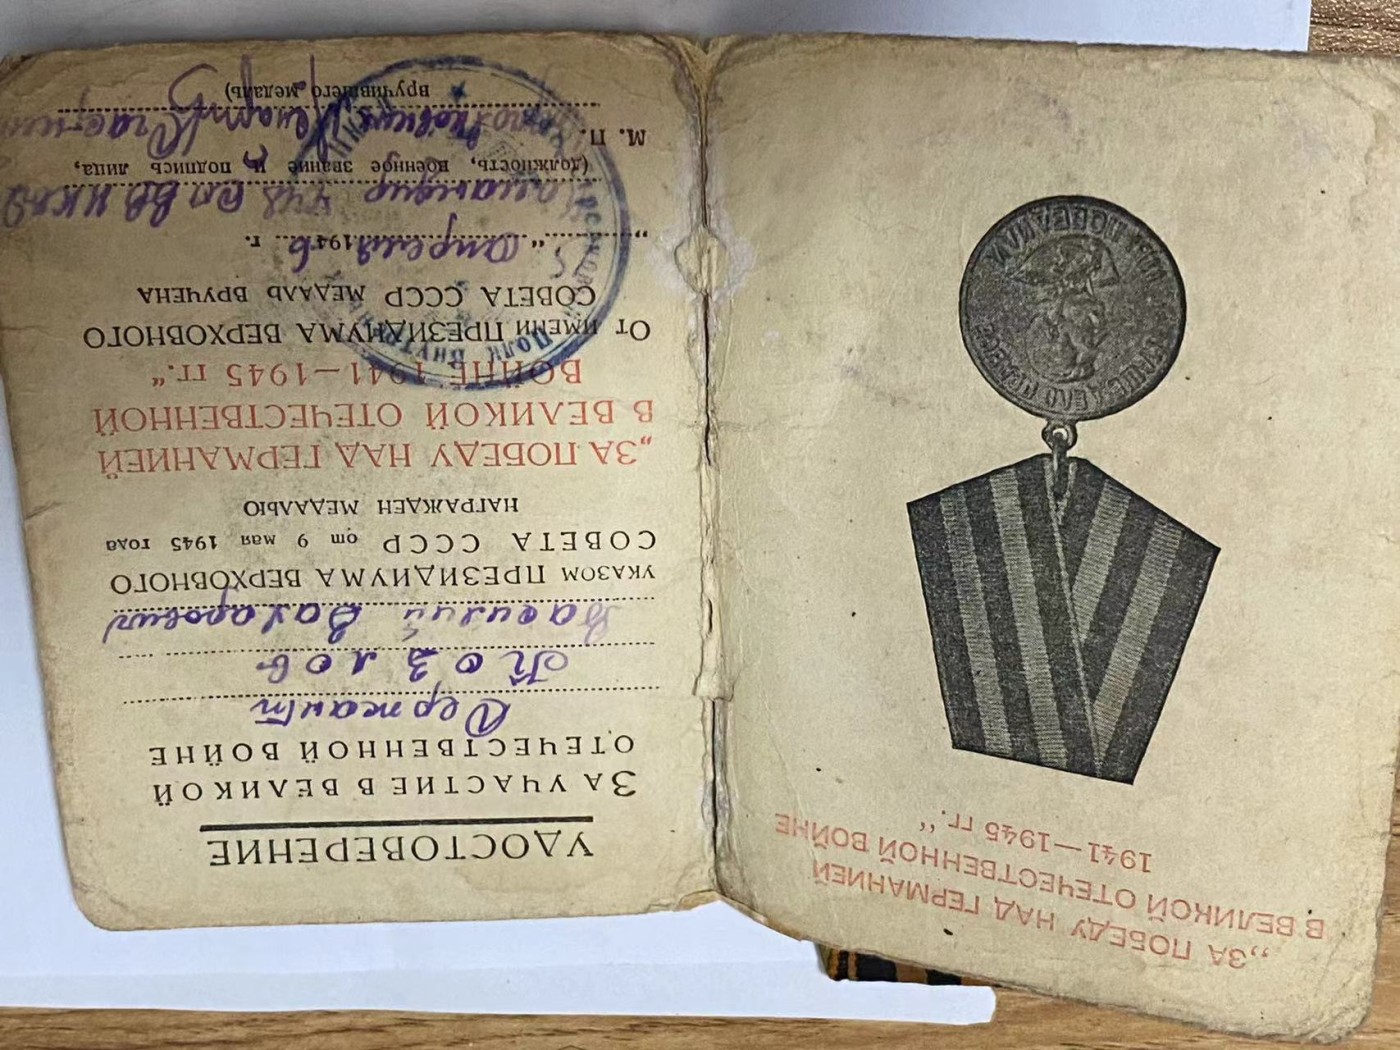 „ЗА ПОБЕДУ НАД ГЕРМАНИЕЙ
В ВЕЛИКОЙ ОТЕЧЕСТВЕННОЙ ВОЙНЕ
1941—1945 гг.“
НАШЕ ДЕЛО ПРАВОЕ
МЫ ПОБЕДИЛИ
УДОСТОВЕРЕНИЕ
ЗА УЧАСТИЕ В ВЕЛИКОЙ
ОТЕЧЕСТВЕННОЙ ВОЙНЕ
Сержант
Козлов
Василий
УКАЗОМ ПРЕЗИДИУМА ВЕРХОВНОГО
СОВЕТА СССР от 9 мая 1945 года
НАГРАЖДЕН МЕДАЛЬЮ
„ЗА ПОБЕДУ НАД ГЕРМАНИЕЙ
В ВЕЛИКОЙ ОТЕЧЕСТВЕННОЙ
ВОЙНЕ 1941—1945 гг.“
От ИМЕНИ ПРЕЗИДИУМА ВЕРХОВНОГО
СОВЕТА СССР МЕДАЛЬ ВРУЧЕНА
„ “ апреля 1946 г.
Командир
(должность, военное звание и подпись лица,
М. П.
вручившего медаль)
Полк Внутрен